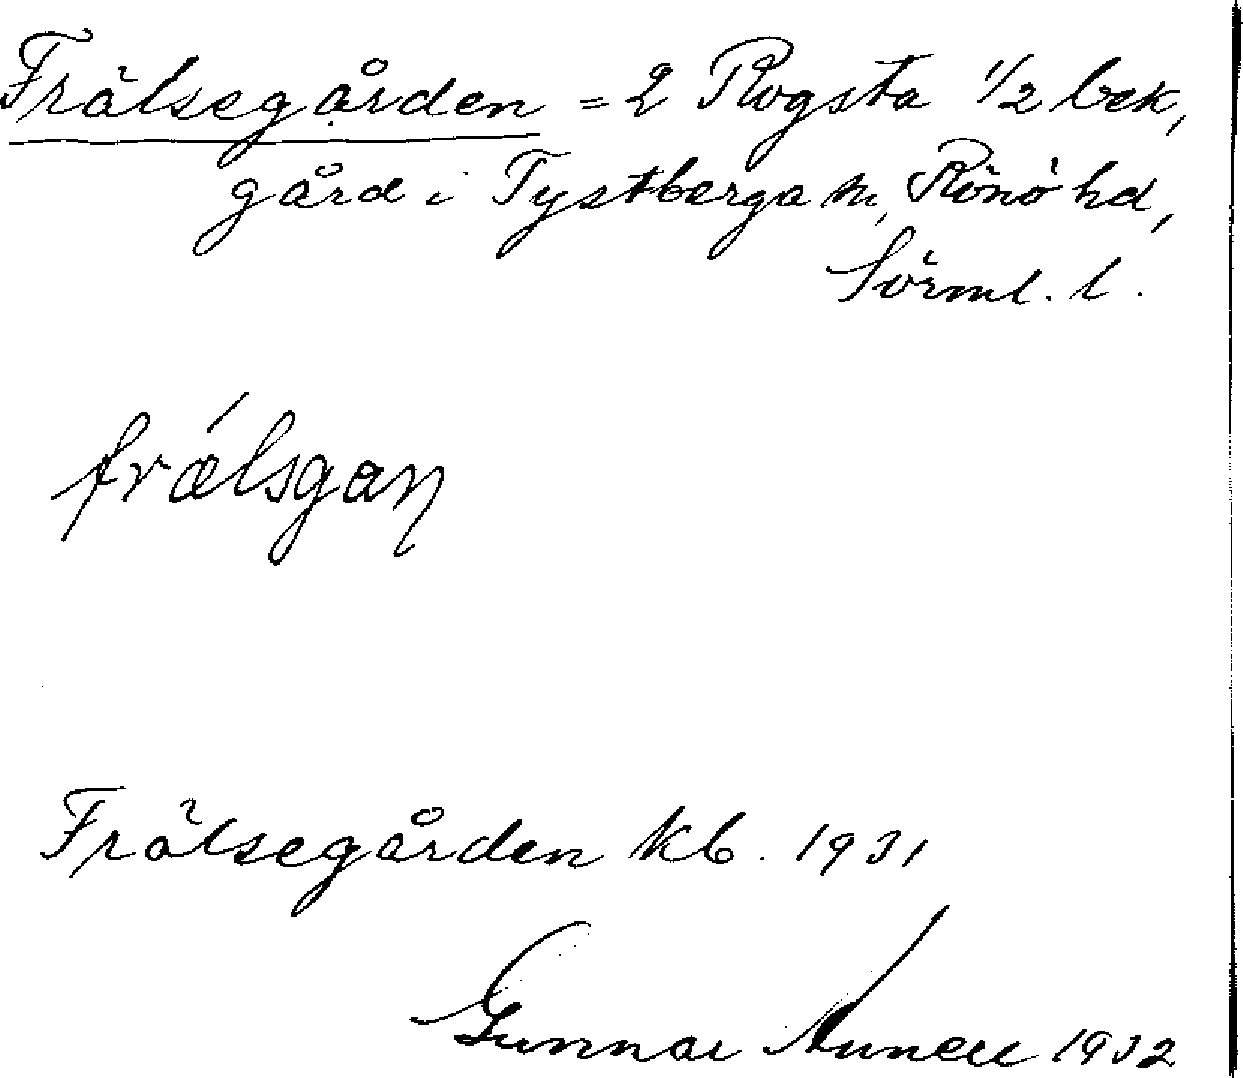 Frälsegården = 2 Rogsta 1/2 bek,
gård i Tystberga sn, Rönö hd,
Sörml. l.
frǽlsgaꞃ
Frälsegården kb. 1931
Gunnar Aunell 1932